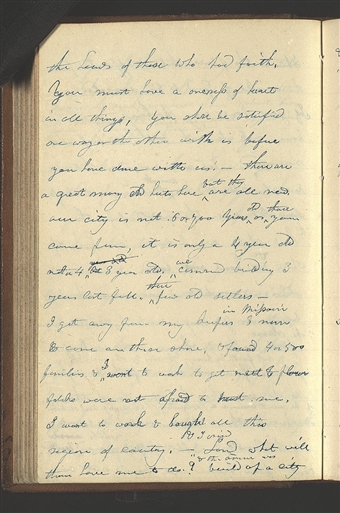 the heads of those who had faith.
You must have a oneness of heart
in all things, You shall be satisfied
one way or the other with us before
you have done with us. — there are
a great many old huts here but they are all new.
our city is not 6 or 700 years old as those you
came from, it is only a 4 year old
not a 4, 3 year old, we commenced building 3
years last fall. there few old settlers —
I got away from my keepers in Missouri & ran
& come on these shore, & found 4 or 500
families & I went to work to get meat & flour
folks were not afraid to trust me,
I went to work & bought all this
region of country. —
Lord what will
thou have me to do? & the answer was build up a city